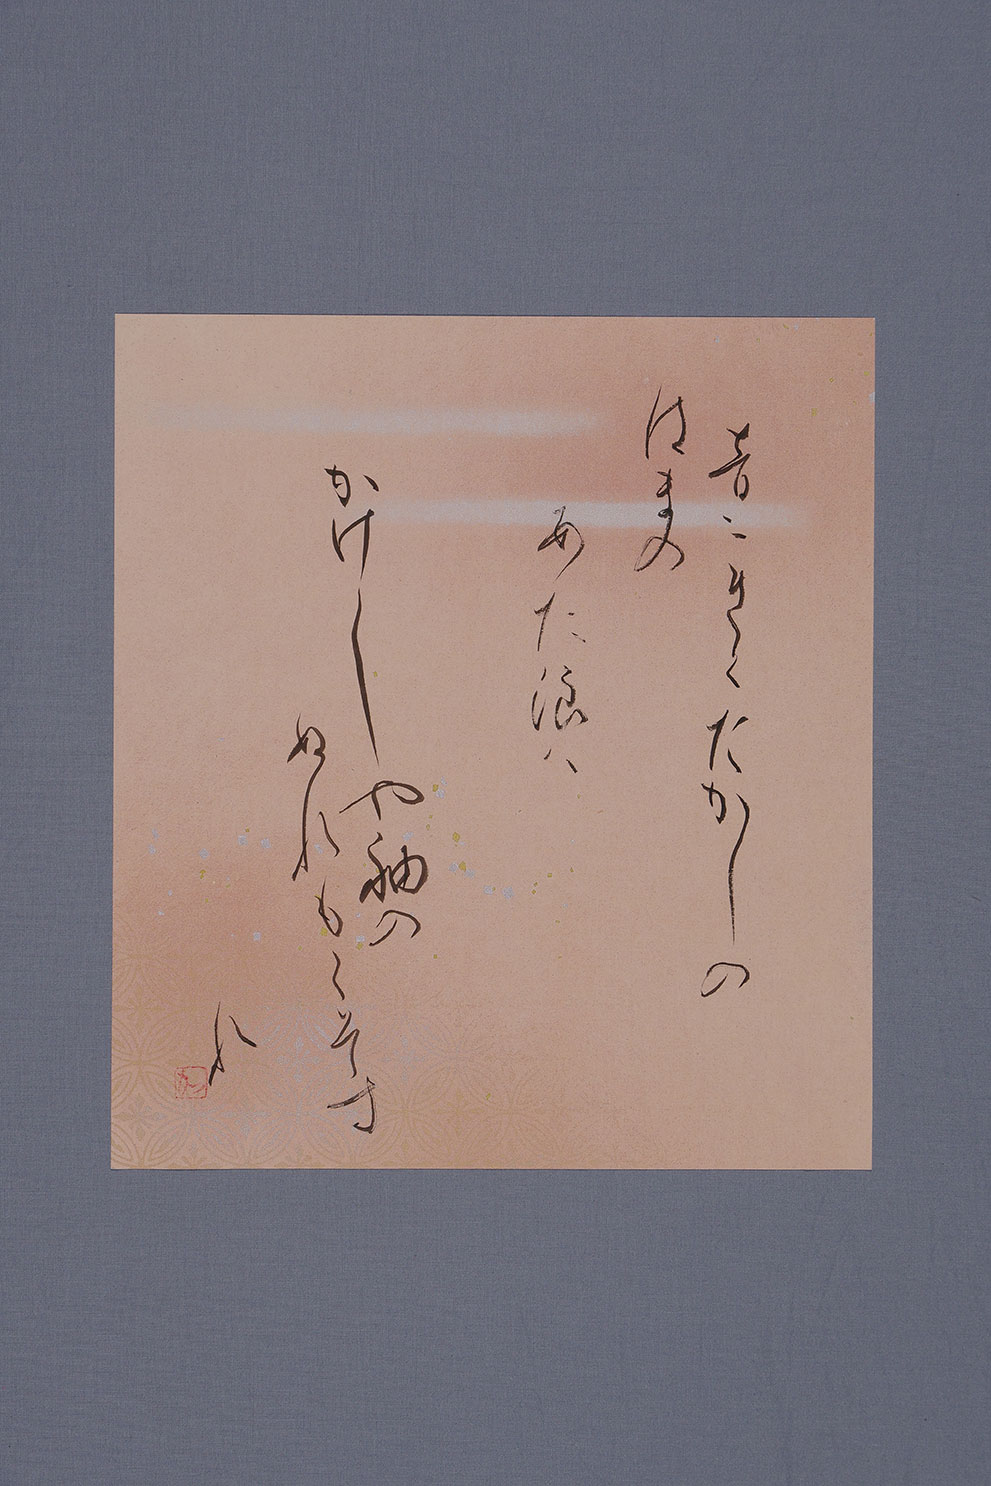 音にきくたかしの
はまの
あた浪ハ
かけしや袖の
ぬれもこそす
れ